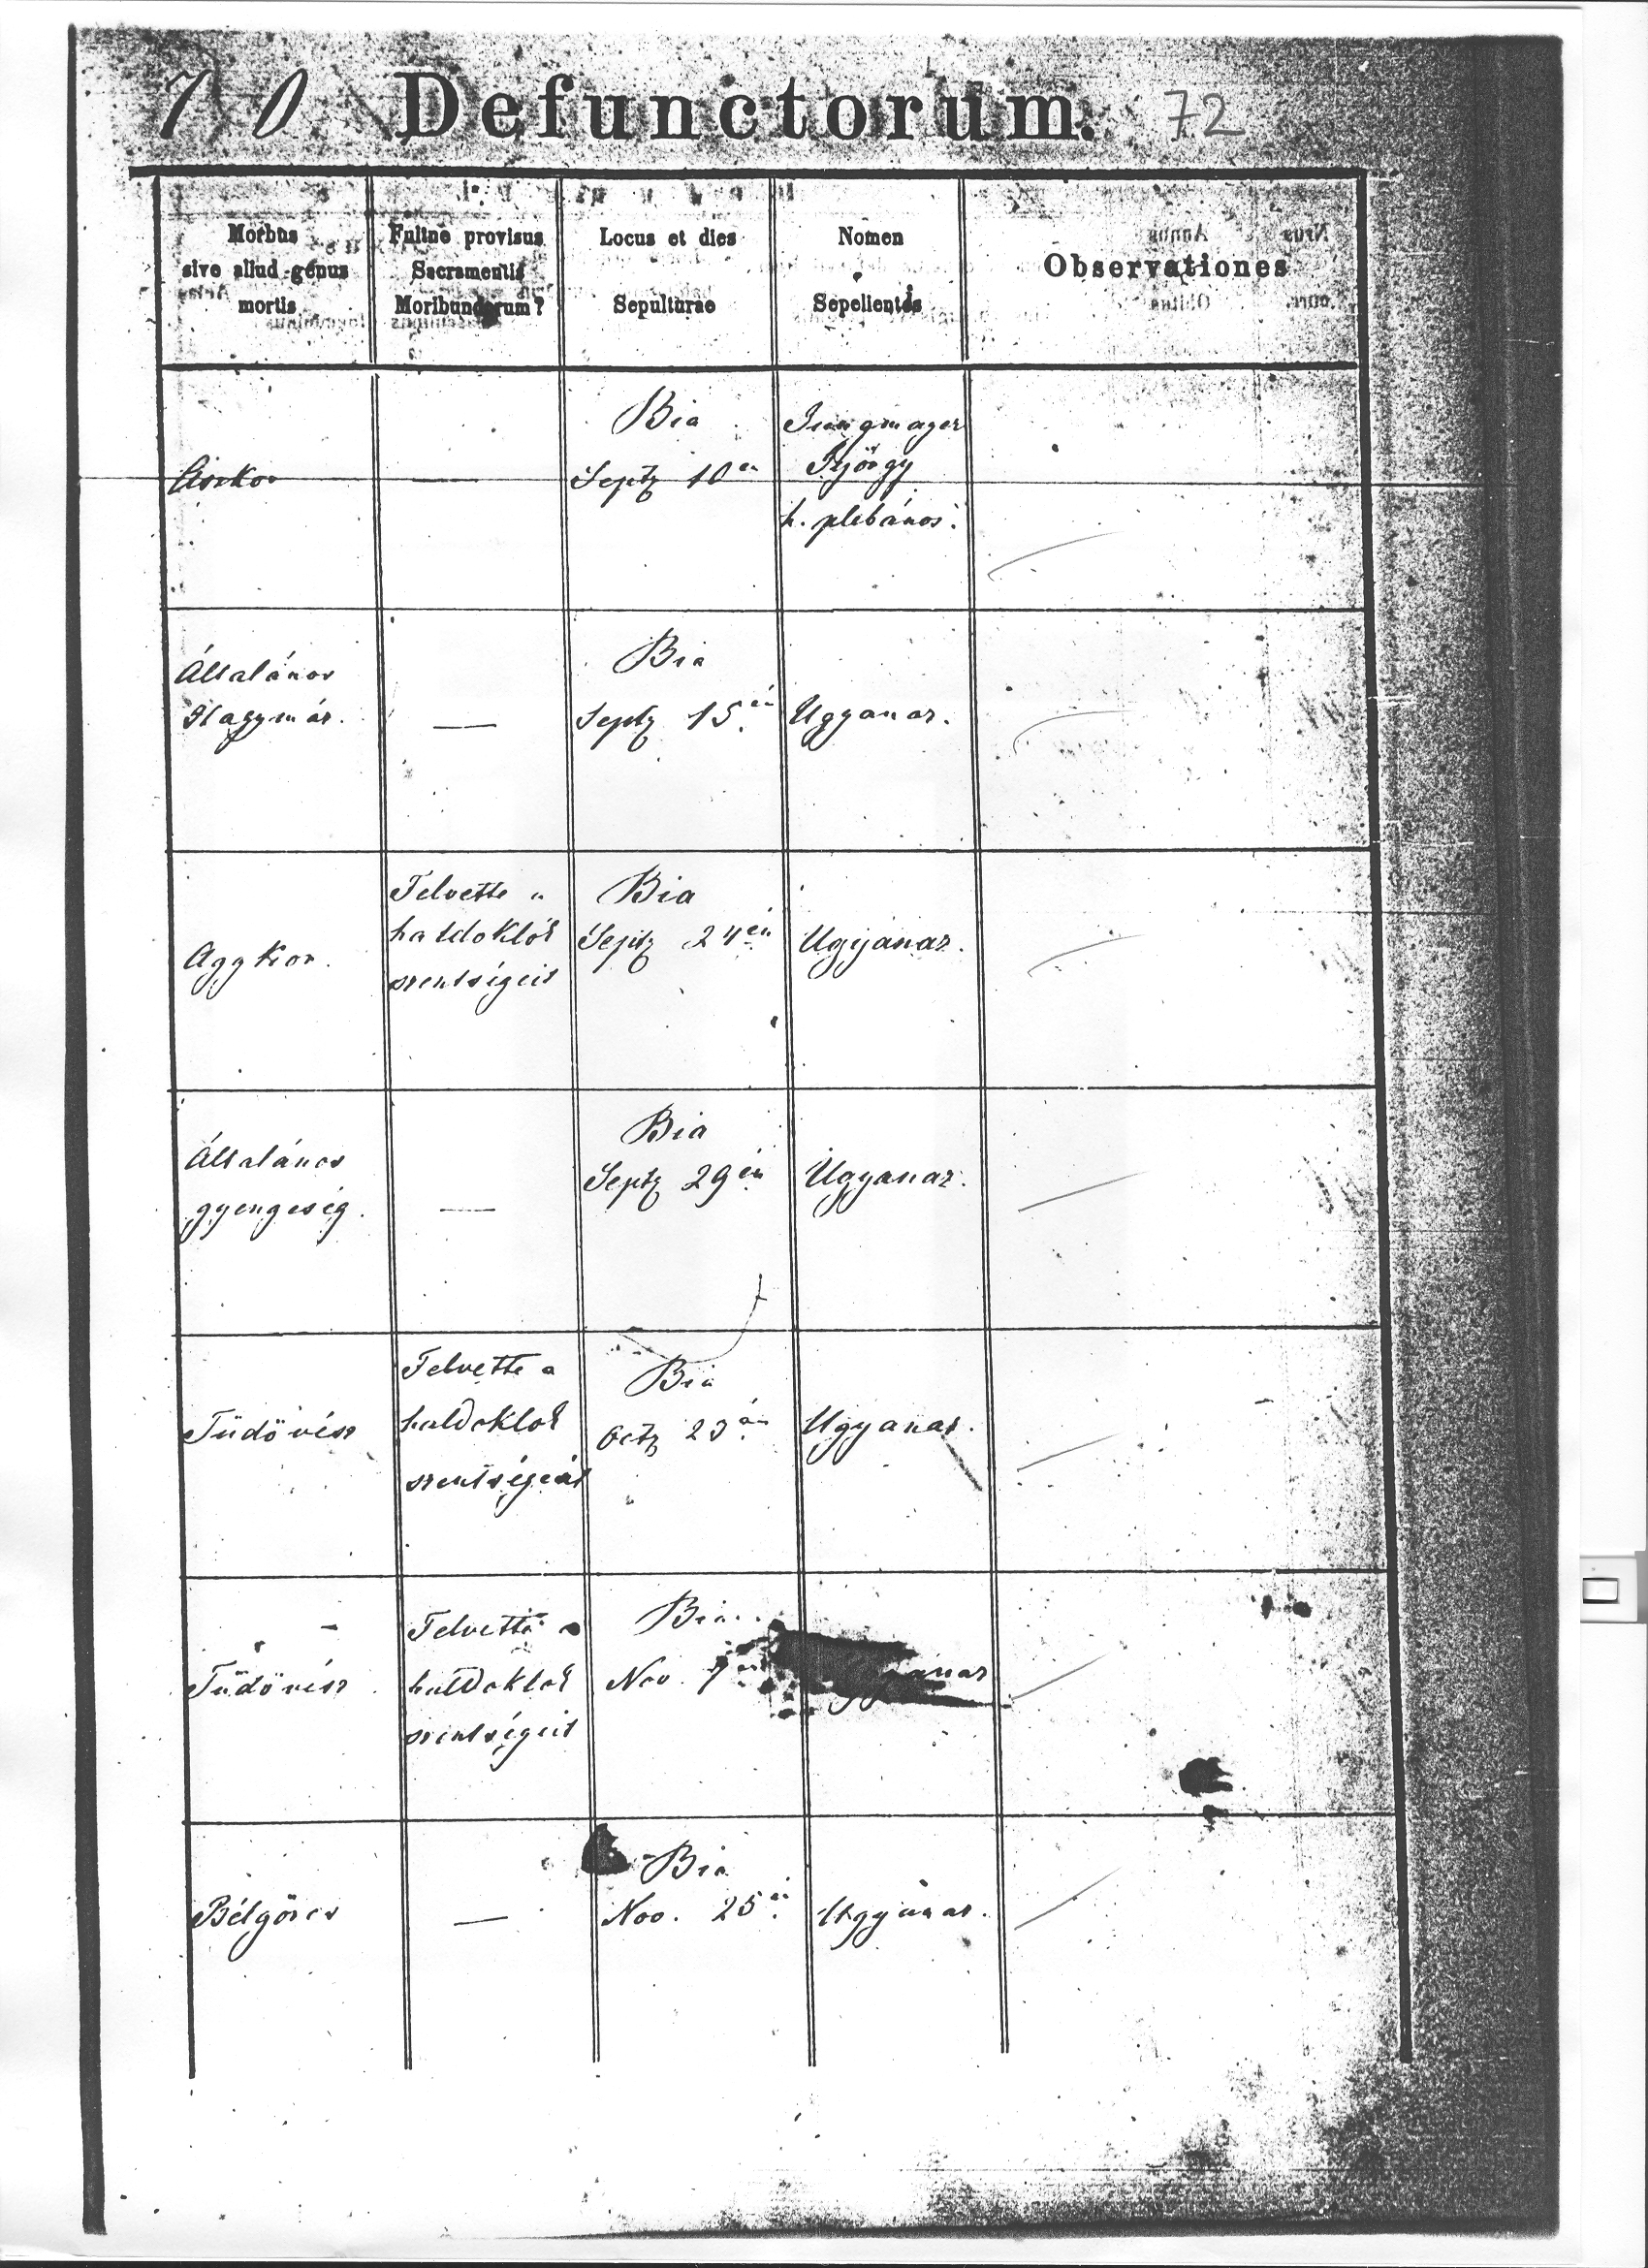 70 Defunctorum. 72
Morbus
sive aliud genus
mortis
Fuitne provisus
Sacramentis
Moribundorum?
Locus et dies
Sepulturae
Nomen
Sepelientis
Observationes
Bia
Septz 10én
Jungmayer
György
h. plébános.
Általános
Hagymáz.
—
Bia
Septz 15én
Ugyanaz.
Aggkor.
Felvette a
haldoklók
szentségeit
Bia
Septz 24én
Ugyanaz.
Általános
gyengeség.
—
Bia
Septz 29én
Ugyanaz.
Tüdővész
Felvette a
haldoklók
szentségeit
Bia
Octz 23án
Ugyanaz.
Tüdővész
Felvette a
haldoklók
szentségeit
Bia
Nov.
Ugyanaz
Bélgörcs
—
Bia
Nov. 25én
Ugyanaz.